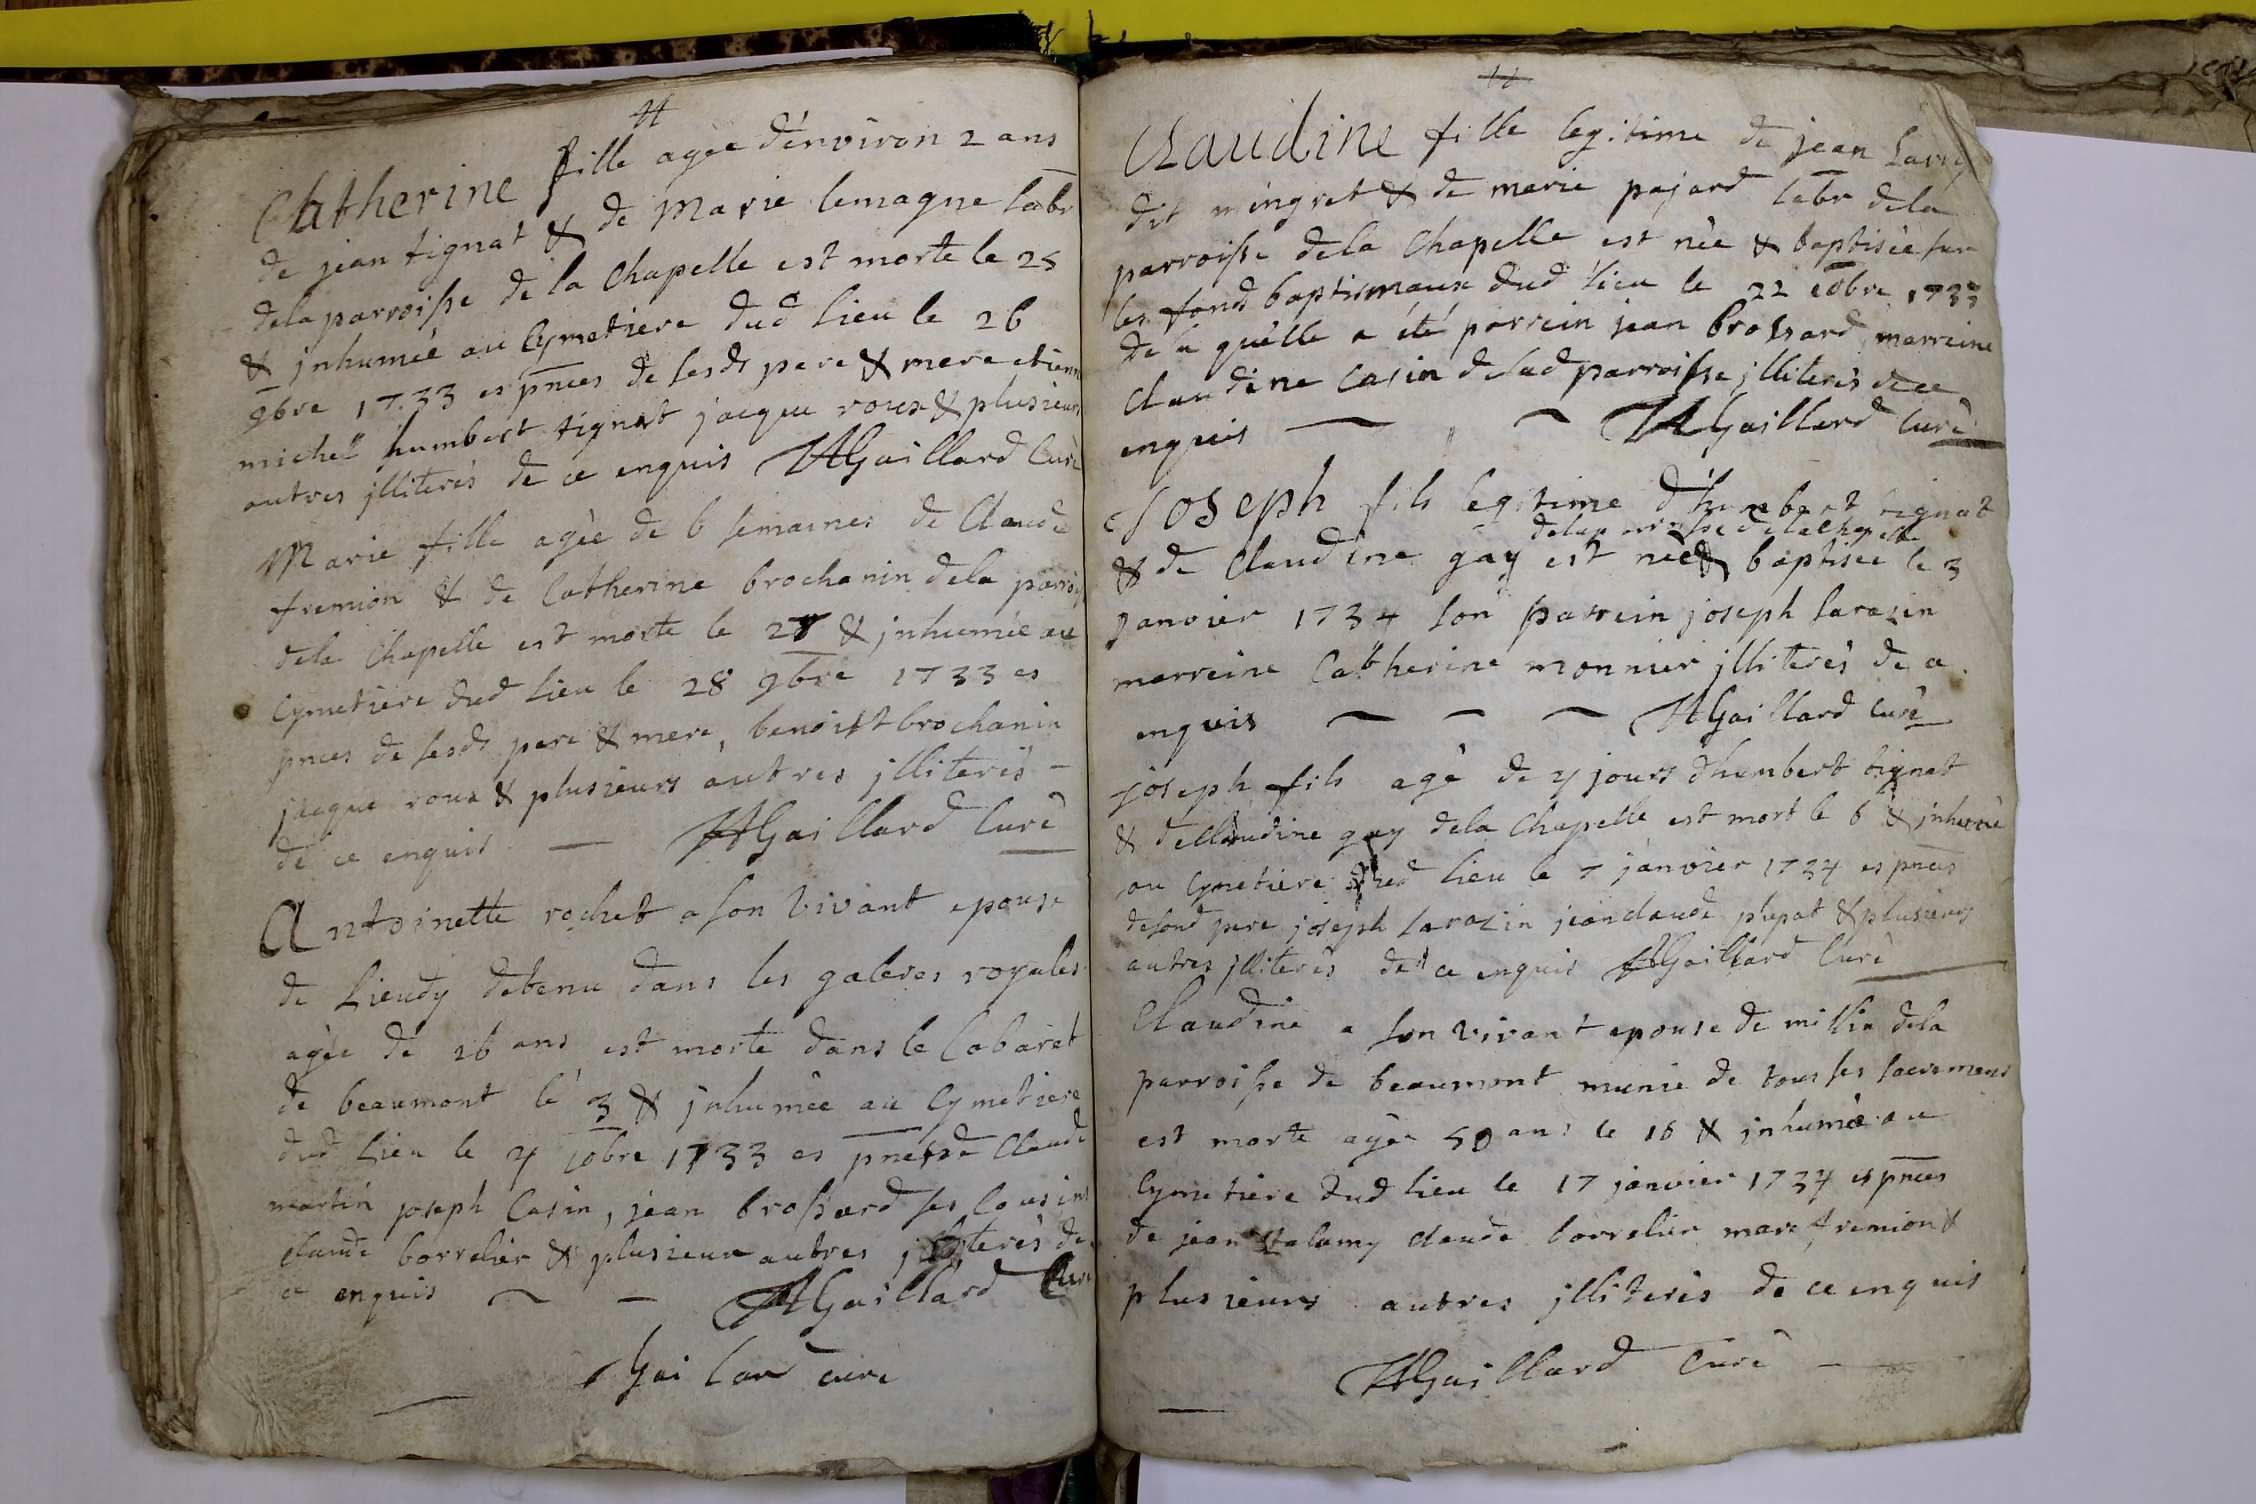 Catherine fille agèe d'environ 2 ans
de jean tignat & de Marie lemagne labr
dela parroisse de la Chapelle est morte le 25
& jnhumèe au Cymetiere dud lieu le 26
9bre 1733 es pnces de sesds pere & mere etienn
michel humbert tignat jacque roux & plusieurs
autres jlliterès de ce enquis Gaillard Curè
Marie fille agèe de 6 semaines de Claude
fremion & de Catherine brochanin dela parroiss
dela Chapelle est morte le 27 & jnhumèe au
Cymetiere dud lieu le 28 9bre 1733 es
pnces de sesds pere & mere, benoist brochanin
jacque roux & plusieurs autres jlliterès -
de ce enquis - Gaillard Curè
Antoinette rochet a son vivant epouse
de Lieudy detenu dans les galeres royales
agèe de 26 ans est morte dans le Cabaret
de beaumont le 3 & jnhumèe au Cymetiere
dud Lieu le 4 10bre 1733 es pnces de Claude
martin joseph Casin, jean brossard ses Cousins
claude borrelier & plusieur autres jlliterès de
ce enquis Gaillard Curè
Gaillard curè
Claudine fille legitime de jean
dit mingret & de marie pajard labr dela
parroisse dela Chapelle est nèe & baptisèe sur
les fonds baptismaux dud lieu le 22 10bre 1733
de la quelle a été parrein jean brossard marreine
Claudine Casin delad parroisse jlliterès de ce
enquis Gaillard Curè
Joseph fils legitime d'humbert tignat
dela parroisse dela Chapelle
& de Claudine gay est nèe & baptisèe le 3
janvier 1734 son parrein joseph sarazin
marreine Catherine monnier jlliterès de ce
enquis Gaillard curè
joseph fils agè de 4 jours d'humbert tignat
& de Claudine gay dela Chapelle est mort le 6 & jnhumè
au Cymetiere dud lieu le 7 janvier 1734 es pnces
desond pere joseph sarazin jean claude & plusieurs
autres jlliterès de ce enquis Gaillard Curè
Claudine a son vivant epouse de millin dela
parroisse de beaumont munie de tous ses sacremens
est morte agèe 50 ans le 16 & jnhumèe au
Cymetiere dud lieu le 17 janvier 1734 es pnces
de jean claude borrelier marc fremion &
plusieurs autres jlliterès de ce enquis
Gaillard Curè